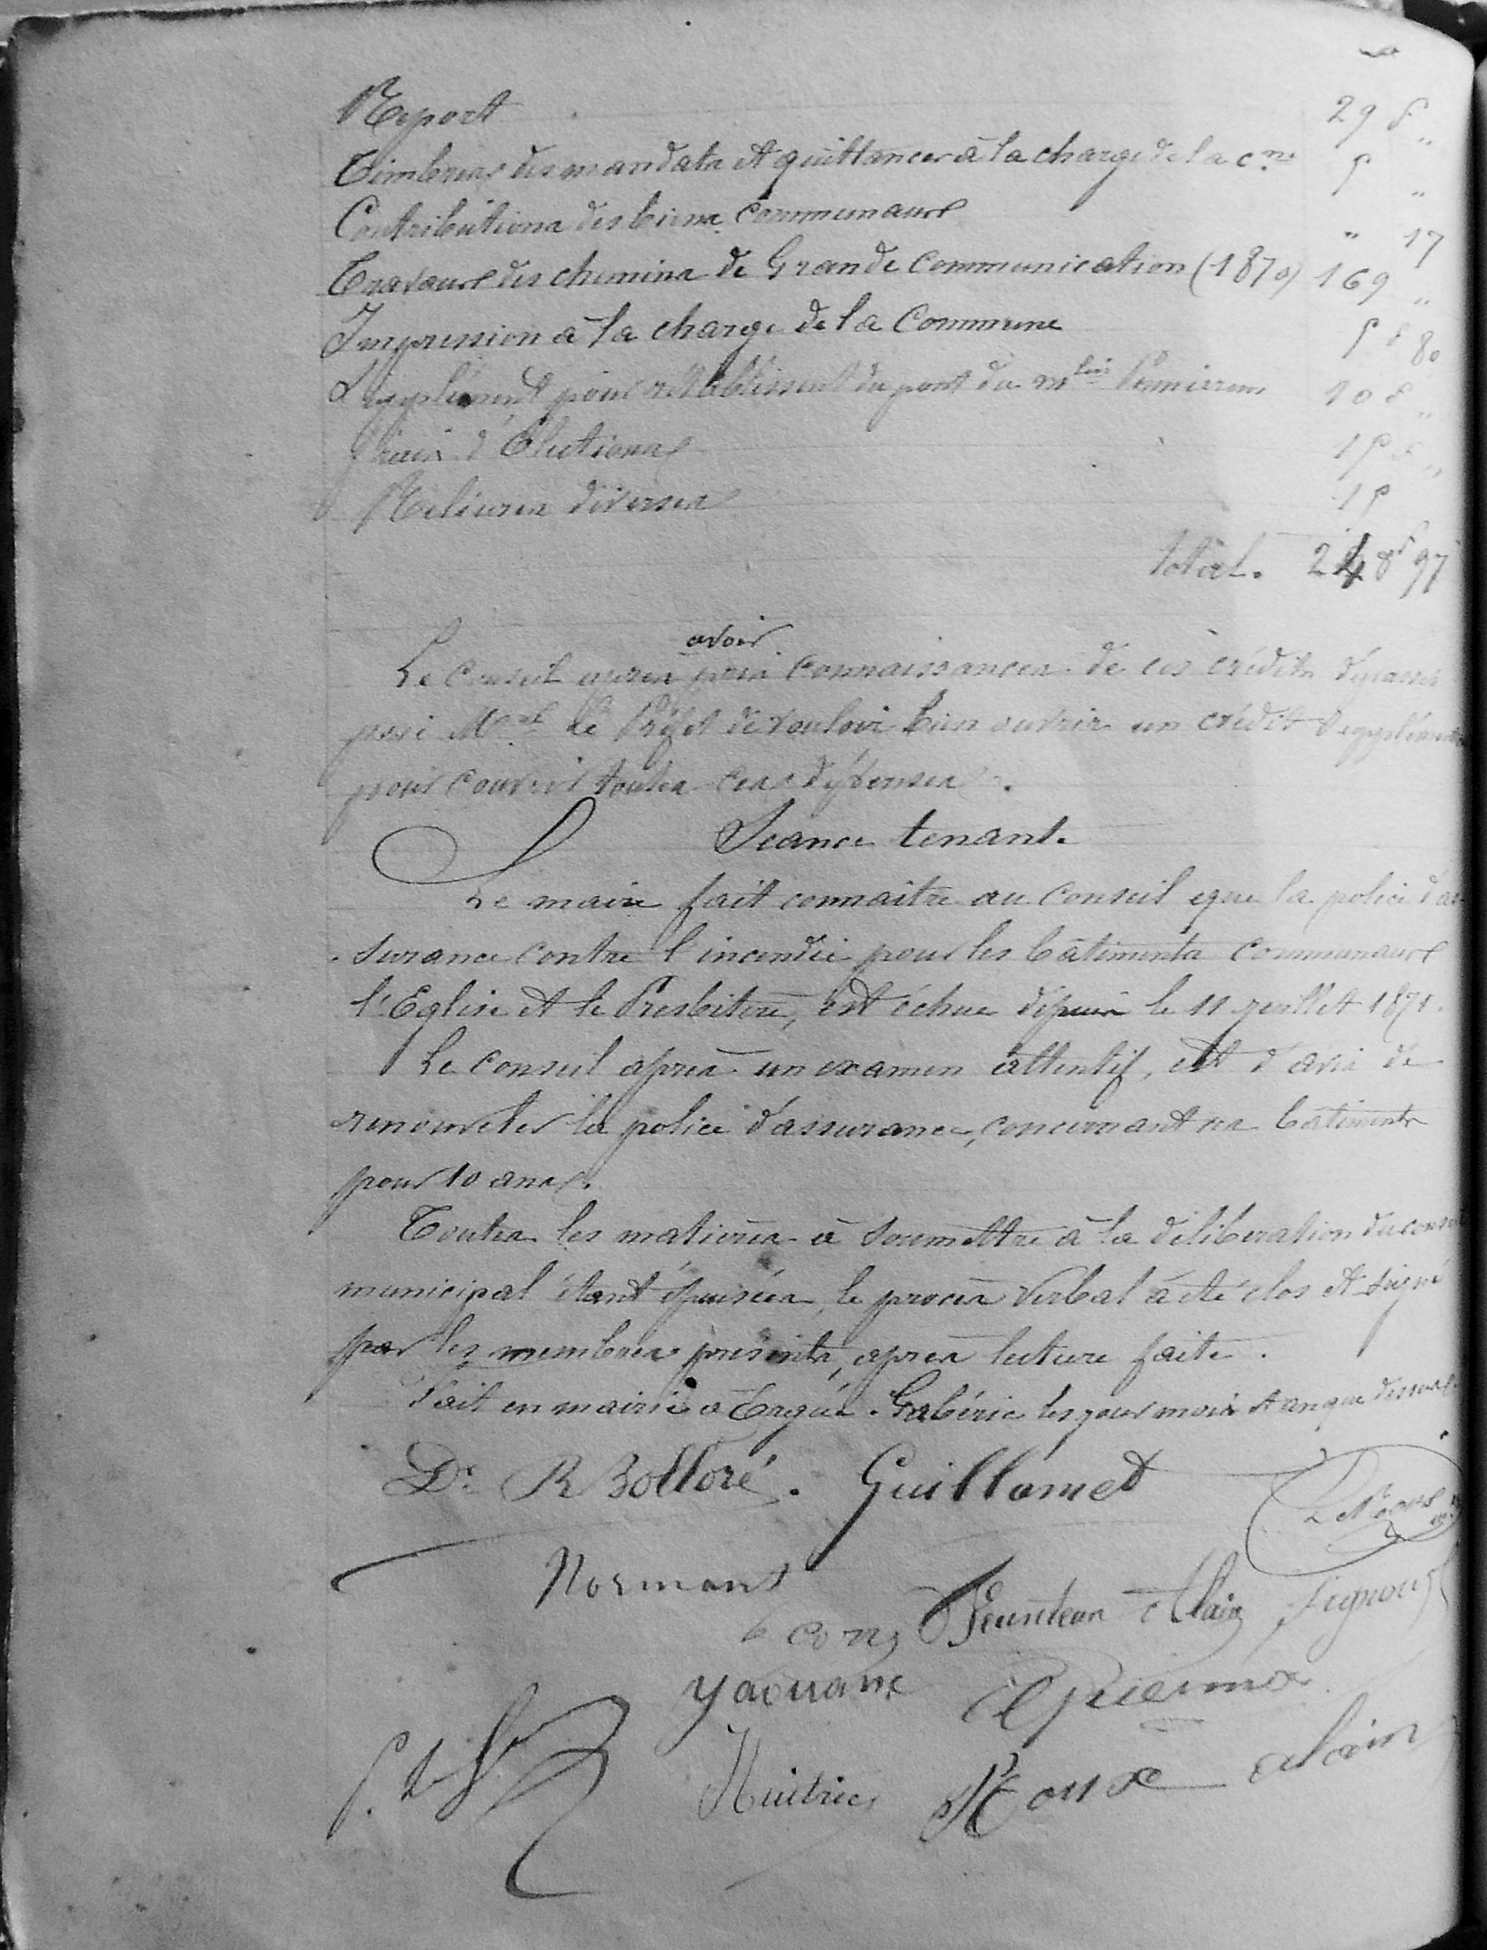 Report 29 f "
Timbres des mandats et quittances à la charge de la cne 5 "
Contributions des biens communaux " 17
Travaux des chemins de Grande communication (1870) 169 "
Impression à la charge de la Commune 5 f 80
Supplément pour rétablissent du pont du mlin 10 f "
Frais d'Elections 15 f "
Reliures diverses 15
Total. 248f 97
avoir
Le Conseil après pris connaissances de ces crédits dépassés
prie Mr le Préfet de vouloir bien ouvrir un crédit
pour couvrir toutes ces dépenses.
Seance tenant.
Le maire fait connaitre au Conseil que la police d'as
surance contre l'incendie pour les bâtiments communaux
l'Eglise et le Presbitere, est échue depuis le 11 juillet 1871.
Le conseil après un examen attentif, est d'avis de
renouveler la police d'assurance, concernant ses bâtiments
pour 10 ans.
Toutes les matières à soumettre à la déliberation du conseil
municipal étant épuisées, le procès verbal a été clos et signé
par les membres présents, après lecture faite.
Fait en mairie à Ergué-Gabéric les jour mois et an que dessus.
Dr R Bolloré. Guillamet
Normant
Feunteun Alain
yaouanc
Huitric Roux alain